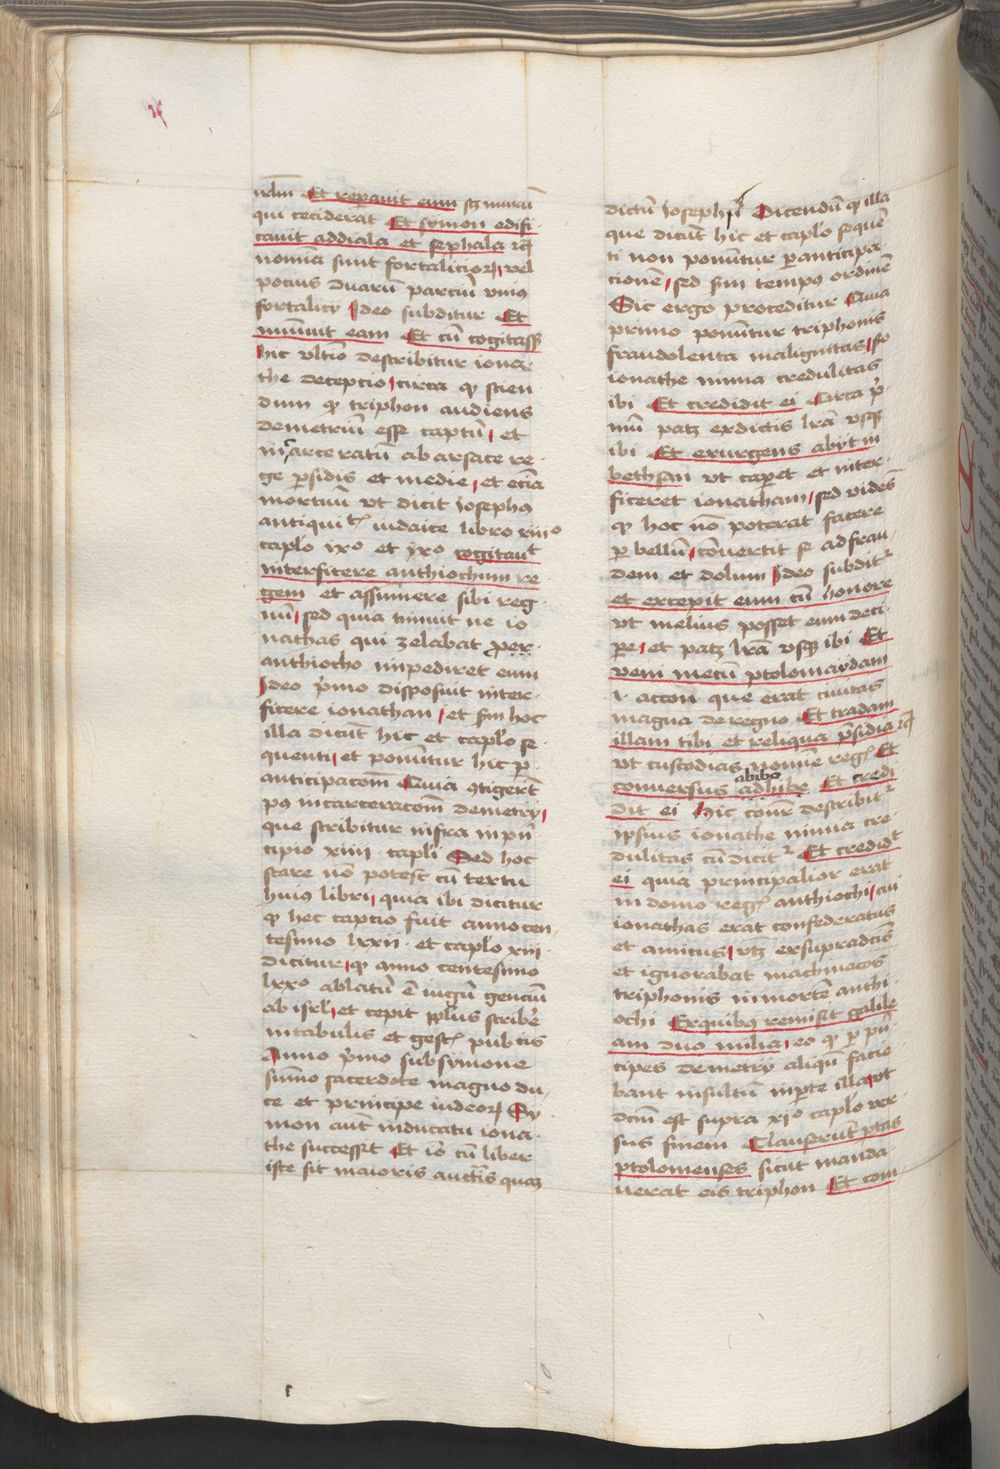 Et reparavit eum sz murū
qui ceciderat Et symon edifi
cavit addiala et sephala
nomīa sunt fortalicioꝝ, vel
potius duarū parciū unius
fortalicy Ideo subditur Et
munivit eam Et cū cogitassꝫ
hic ultīo describitur iona-
the deceptio, circa qꝫ scien
dum qꝫ triphon audiens
demetriū esse captū, et
incarceratū ab arsace re-
ge ꝑsidis et medie, et etiā
mortuū ut dicit iosephus
antiquit iudaice libro xiiiᵒ
capło ixᵒ et xᵒ cogitavit
interficere anthiochum re
gem et assumere sibi reg-
nū, sed quia timuit ne io
nathas qui zelabat pro
anthiocho impediret eum
Ideo p̄mo disposuit inter-
ficere ionathan, et s̄m hoc
illa dicūt hic et capło se-
quenti, et ponūtur hic ꝑ
anticipacōem Quia ꝯtigerūt
post incarceracōem demetry,
que scribitur infra in prī
cipio xiiii capli Sed hoc
stare nō potest cū textu
huius libri, quia ibi dicitur
qꝫ hec captio fuit anno cen
tesimo lxxii et capło xiii
dicitur, qꝫ anno centesimo
lxxᵒ ablatū ē iugū gentiū
ab isrl, et cepit ppłus scribē
in tabulis et gestꝭ publicis
Anno p̄mo sub symone
sūmo sacerdote magno du-
ce et principe iudeoꝝ Sy
mon aūt in ducatu iona-
the successit Et iō cū liber
iste sit maioris auctītis quaꝫ
dictū iosephi Dicendū qꝫ illa
que dicūt hic et capło sequē
ti non ponūtur ꝑ anticipa-
cionē, sed s̄m tempus ordinē
Sic ergo proceditur Quia
primo ponūtur triphonis
fraudolenta malignitas, scᵒ
ionathe nimia credulitas
ibi Et credidit ei Circa p̄-
mū patꝫ ex dictis lrā usqꝫ
ibi Et exurgens abyt in
bethsan ut caperet et inter-
ficeret ionatham, sed vidēs
qꝫ hoc nō poterat facere
ꝑ bellū, cōvertit se ad frau-
dem et dolum Ideo subditʳ
et excepit eum cū honore
ut melius posset eum deci-
pe, et patꝫ lrā usqꝫ ibi Et
veni mecū ptolomaydam
i accon que erat civitas
magna de regno Et tradam
illam tibi et reliqua p̄sidia
ut custodias nomīe regꝭ Et
abibo
conversus adhibe Et credi
dit ei Hic cōnr̄ describitʳ
ipsius ionathe nimia cre-
dulitas cū dicitʳ Et credidᵗ
ei quia principalior erat
in domo regꝭ anthiochi, cui
ionathas erat confederatus
et amicus, utꝫ ex supradcīs
et ignorabat machinacōes
triphonis in mortē anthi-
ochi Ex quibus remisit galile
am duo milia, eo qꝫ ꝑ prī-
cipes demetry aliquū facie
bant insultū in ꝑte illa, ut
dcm est supra xiᵒ capło ver
sus finem Clauserūt ptas
ptolomenses sicut manda-
verat eis triphon Et com